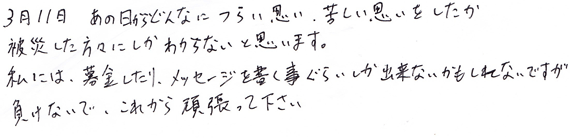 3月11日 あの日からどんなに つらい思い、苦しい思いをしたか
被災した方々にしかわからないと思います。
私には、募金したり、メッセージを書く事ぐらいしか出来ないかもしれないですが
負けないで、これから頑張って下さい